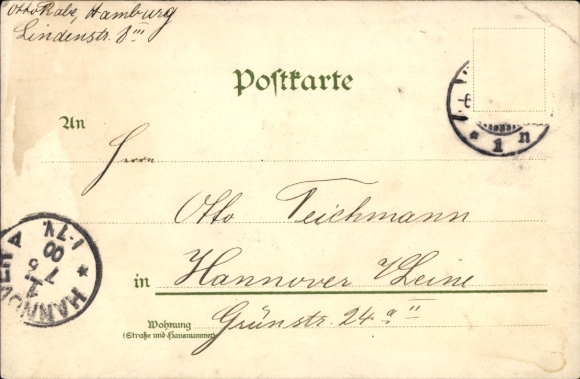 Otto Rabe, Hamburg
Lindenstr. 8 III
Postkarte
An
Herrn
Otto Teichmann
in Hannover / Leine
Wohnung Grünstr. 24 a II
(Straße und Hausnummer)
* 1 n
HANNOVER
1-7 V.
00